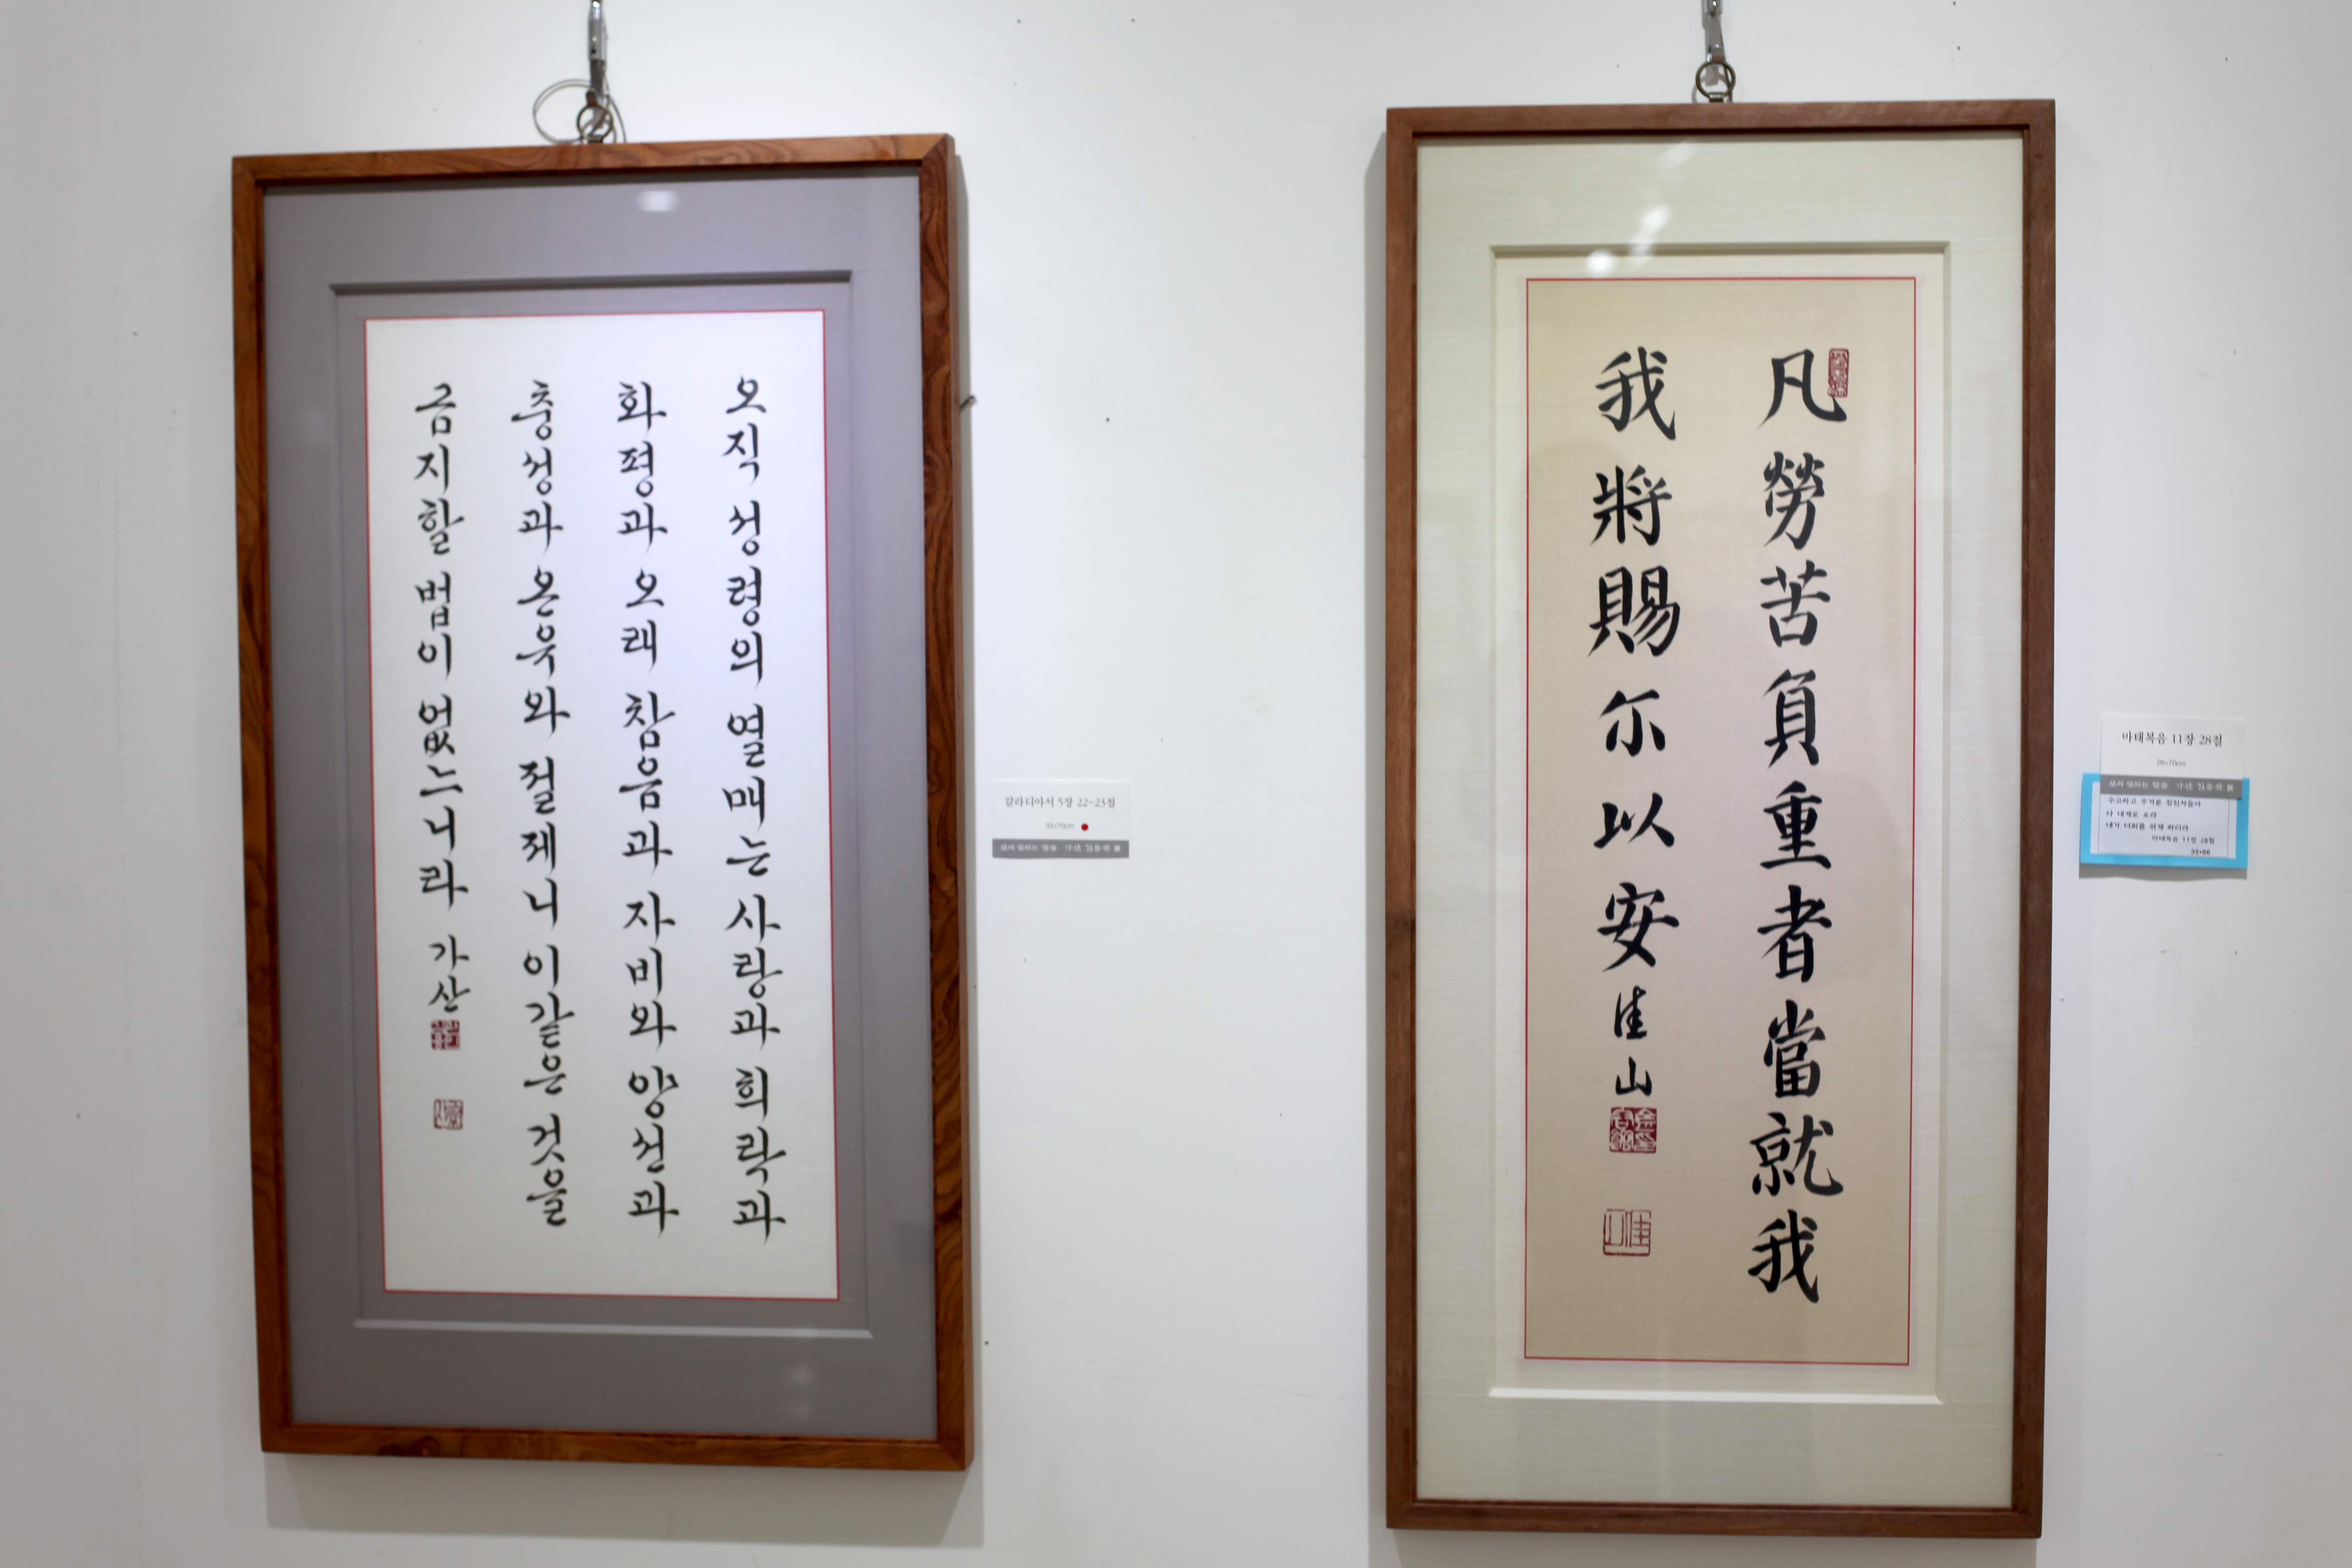 오직 성령의 열매는 사랑과 희락과
화평과 오래 참음과 자비와 양선과
충성과 온유와 절제니 이같은 것을
금지할 법이 없느니라 가산
갈라디아서 5장 22-23절
33×70cm
凡勞苦負重者當就我
我將賜尓以安 佳山
마태복음 11장 28절
26×70cm
수고하고 무거운 짐진자들아
다 내게로 오라
내가 너희를 쉬게 하리라
마태복음 11장 28절
35×86